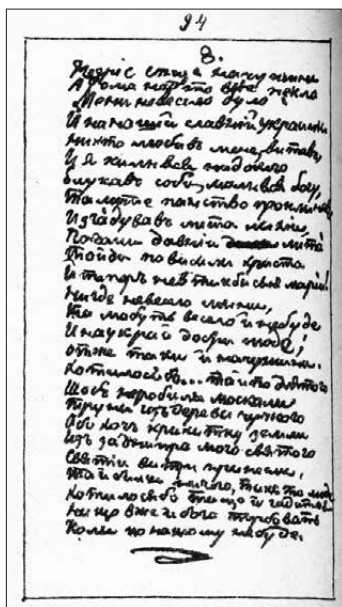 94
8.
Негріе сонце на чужыни
А дома надто вже пекло
Мени невесело було
Й на нашій славній украини
Нихто любывъ мене, витавъ,
И я хилився ни до кого
блукавъ соби, молывся богу,
Та люте панство проклинавъ.
И згадувавъ лита лихіи,
Погани давніи лита
Тойди повисили христа
И тыперь не втикъ бы сынъ маріи!
Нигде не весело мени,
Та мабуть весело й не буде
И на украйни добри люде;
Отже таки й на чужыни.
Хотилося бъ... та й то для того
Щобъ не робили москали
Труни изъ дерева чужого
Або хочъ крихитку земли
Изъ за днипра мого святого
Святіи витри принесли,
Та й билшъ ничого, такъ то люде
Хотилося бъ то що й гадать
На що вже й бога турбовать
Коли по нашому не буде.